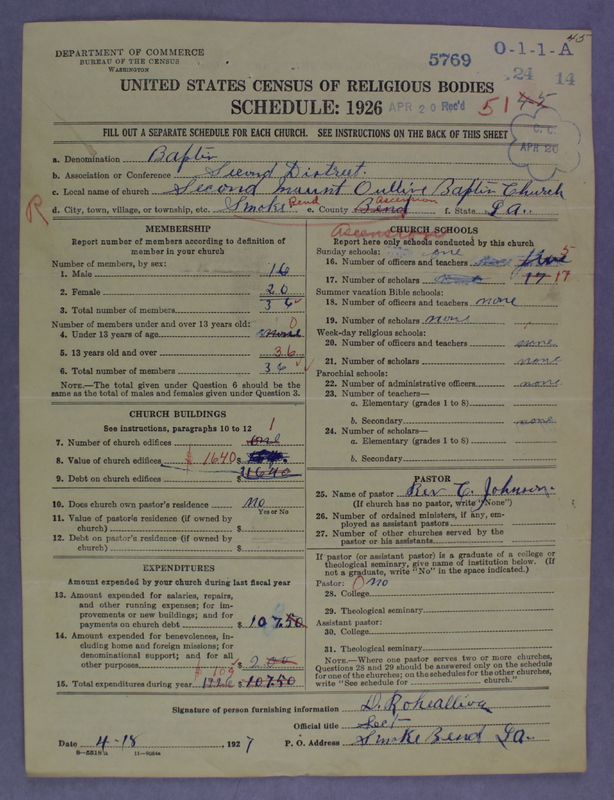 45
DEPARTMENT OF COMMERCE
BUREAU OF THE CENSUS
WASHINGTON
5769
O-1-1-A
24 14
UNITED STATES CENSUS OF RELIGIOUS BODIES
SCHEDULE: 1926
APR 20 Rec'd
51 45
FILL OUT A SEPARATE SCHEDULE FOR EACH CHURCH. SEE INSTRUCTIONS ON THE BACK OF THIS SHEET
C. C.
APR 20
a. Denomination Baptis
b. Association or Conference Second District.
c. Local name of church Second mount Outlive Baptis Church
R
d. City, town, village, or township, etc. Smoke Bend e. County Bend Ascension f. State La.
Ascension
MEMBERSHIP
Report number of members according to definition of member in your church
Number of members, by sex:
1. Male 16
2. Female 20
3. Total number of members 36
Number of members under and over 13 years old:
4. Under 13 years of age none 0
5. 13 years old and over 36
6. Total number of members 36
NOTE.—The total given under Question 6 should be the same as the total of males and females given under Question 3.
CHURCH BUILDINGS
See instructions, paragraphs 10 to 12
7. Number of church edifices one 1
8. Value of church edifices $ 1640 $
9. Debt on church edifices $ 1640
10. Does church own pastor's residence no
Yes or No
11. Value of pastor's residence (if owned by church) $
12. Debt on pastor's residence (if owned by church) $
EXPENDITURES
Amount expended by your church during last fiscal year
13. Amount expended for salaries, repairs, and other running expenses; for improvements or new buildings; and for payments on church debt $ 107.50
14. Amount expended for benevolences, including home and foreign missions; for denominational support; and for all other purposes $ 2.00
$ 108
15. Total expenditures during year 1926 $ 107.50
CHURCH SCHOOLS
Report here only schools conducted by this church
Sunday schools: one
16. Number of officers and teachers five 5
17. Number of scholars 17 17
Summer vacation Bible schools:
18. Number of officers and teachers none
19. Number of scholars none
Week-day religious schools:
20. Number of officers and teachers none
21. Number of scholars none
Parochial schools:
22. Number of administrative officers none
23. Number of teachers—
a. Elementary (grades 1 to 8)
b. Secondary none
24. Number of scholars—
a. Elementary (grades 1 to 8)
b. Secondary
PASTOR
25. Name of pastor Rev C. Johnson.
(If church has no pastor, write "None")
26. Number of ordained ministers, if any, employed as assistant pastors
27. Number of other churches served by the pastor or his assistants
If pastor (or assistant pastor) is a graduate of a college or theological seminary, give name of institution below. (If not a graduate, write "No" in the space indicated.)
Pastor: 0 no
28. College
29. Theological seminary
Assistant pastor:
30. College
31. Theological seminary
NOTE.—Where one pastor serves two or more churches, Questions 28 and 29 should be answered only on the schedule for one of the churches; on the schedules for the other churches, write "See schedule for church."
Signature of person furnishing information
Official title Sect
Date 4-18, 1927 P. O. Address Smoke Bend La.
8—5518a 11—9084a